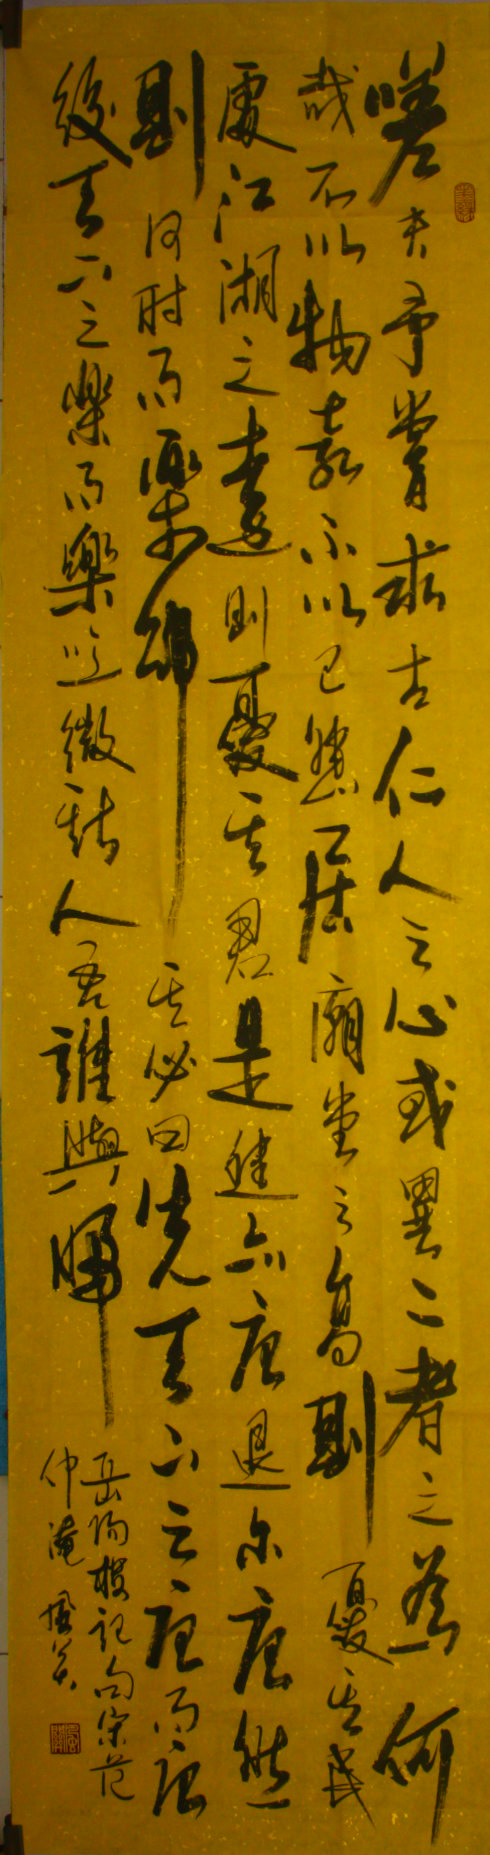 嗟夫予嘗求古仁人之心或異二者之為何
哉不以物喜不以己悲居廟堂之高則憂其民
處江湖之遠則憂其君是進亦憂退亦憂然
則何時而樂耶其必曰先天下之憂而憂
後天下之樂而樂噫微斯人吾誰與歸
岳陽樓記句宋范
仲淹